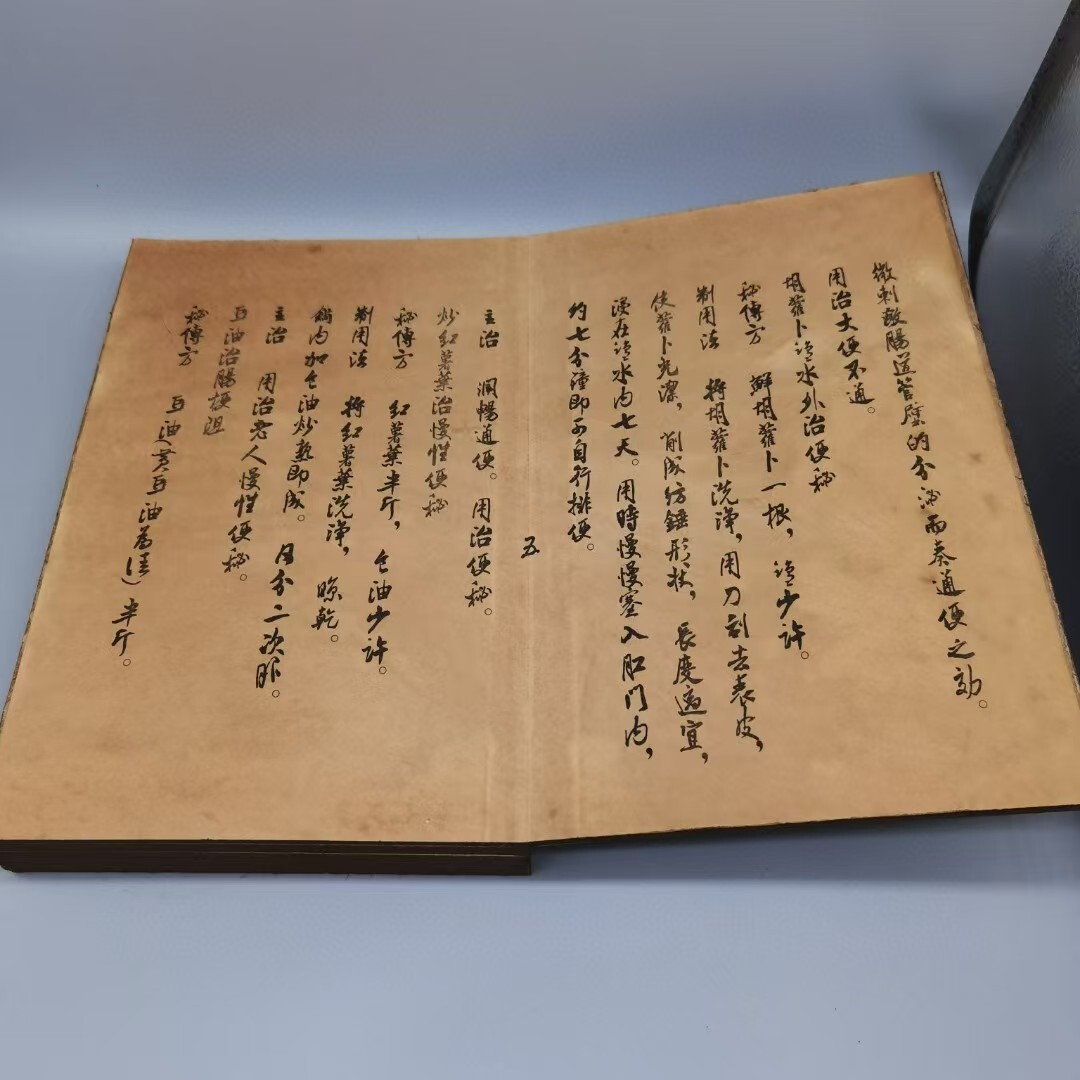 微刺激腸道管壁的分泌而奏通便之効。
用治大便不通。
胡蘿卜塩水外治便秘
秘傳方 鮮胡蘿卜一根，塩少許。
制用法 将胡蘿卜洗净，用刀刮去表皮，
使蘿卜光潔，削成仿錘形状，長度適宜，
浸在塩水内七天。用時慢慢塞入肛门内，
约七分鐘即可自行排便。
五
主治 潤暢通便。用治便秘。
炒紅薯葉治慢性便秘
秘傳方 紅薯葉半斤，仓油少許。
制用法 将紅薯葉洗净，晾乾。
鍋内加仓油炒熟即成。日分二次服。
主治 用治老人慢性便秘。
豆油治腸梗阻
秘傳方 豆油（黄豆油為佳）半斤。